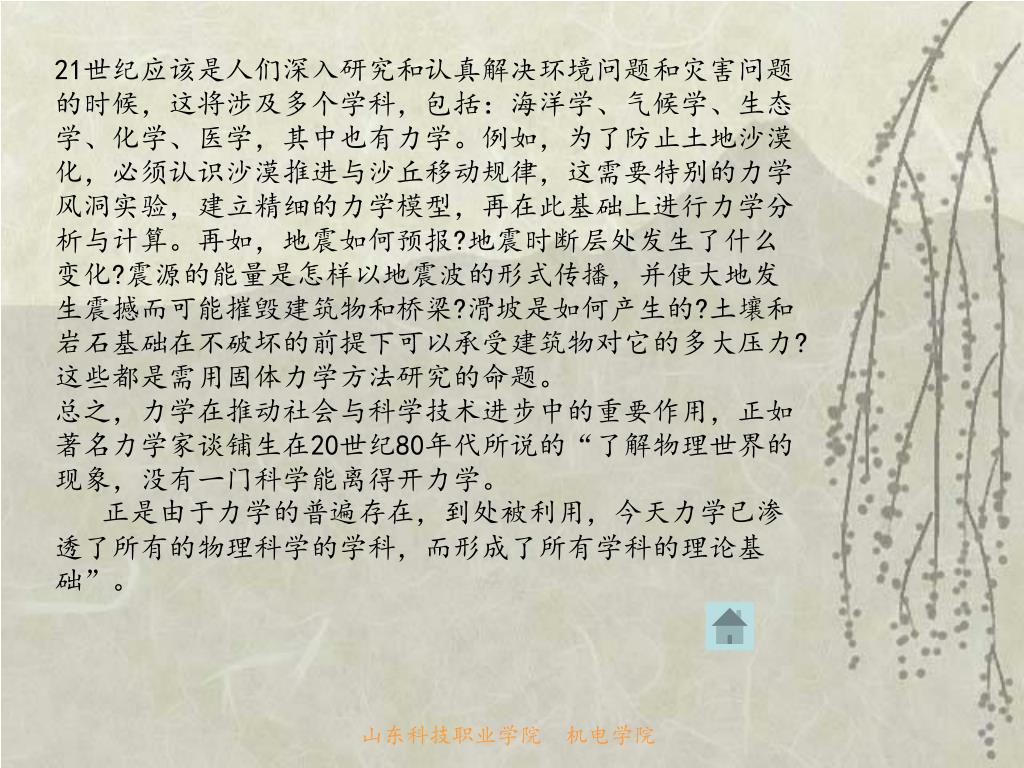 21世纪应该是人们深入研究和认真解决环境问题和灾害问题
的时候，这将涉及多个学科，包括：海洋学、气候学、生态
学、化学、医学，其中也有力学。例如，为了防止土地沙漠
化，必须认识沙漠推进与沙丘移动规律，这需要特别的力学
风洞实验，建立精细的力学模型，再在此基础上进行力学分
析与计算。再如，地震如何预报?地震时断层处发生了什么
变化?震源的能量是怎样以地震波的形式传播，并使大地发
生震撼而可能摧毁建筑物和桥梁?滑坡是如何产生的?土壤和
岩石基础在不破坏的前提下可以承受建筑物对它的多大压力?
这些都是需用固体力学方法研究的命题。
总之，力学在推动社会与科学技术进步中的重要作用，正如
著名力学家谈铺生在20世纪80年代所说的“了解物理世界的
现象，没有一门科学能离得开力学。
正是由于力学的普遍存在，到处被利用，今天力学已渗
透了所有的物理科学的学科，而形成了所有学科的理论基
础”。
山东科技职业学院 机电学院